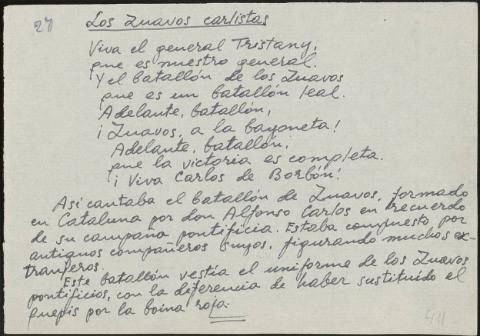 27
Los Zuavos carlistas
Viva el general Tristany,
que es nuestro general.
Y el batallón de los Zuavos
que es un batallón leal.
Adelante, batallón,
¡Zuavos, a la bayoneta!
Adelante, batallón,
que la victoria es completa.
¡Viva Carlos de Borbón!
Asi cantaba el batallón de Zuavos, formado
en Cataluna por don Alfonso Carlos en recuerdo
de su campaña pontificia. Estaba compuesto por
antiguos compañeros suyos, figurando muchos ex-
tranjeros.
Este batallón vestía el uniforme de los Zuavos
pontificios, con la diferencia de haber sustituido el
quepis por la boina roja.